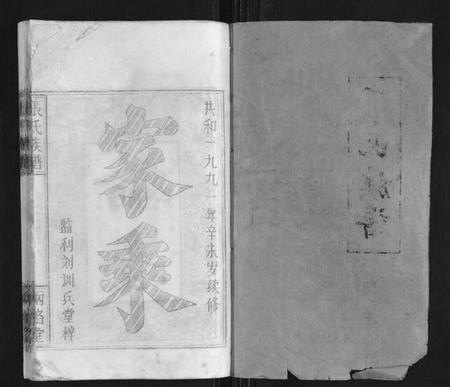 共和一九九一年辛未岁续修
家乘
监利刘训兵堂梓
張氏族譜